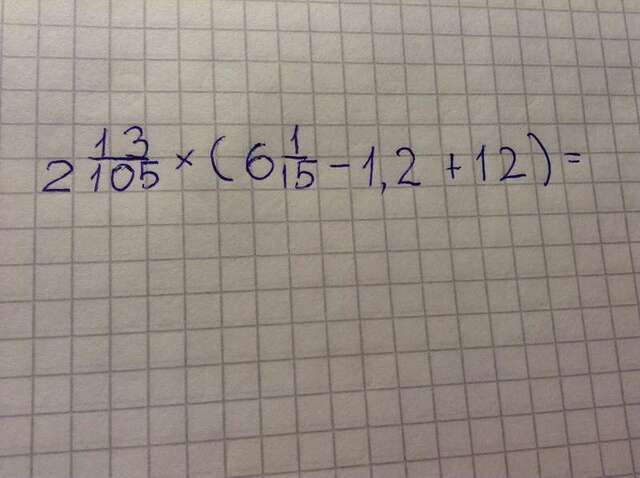 2 13/105 × (6 1/15 - 1,2 + 12) =